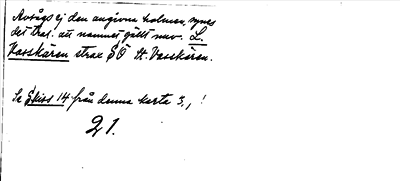 Avsågs ej den angivna holmen, synes
det trol. att namnet gällt nuv. L.
Vasskären strax SÖ St. Vasskären.
Se Skiss 14 från denna karta 3,, !
21.